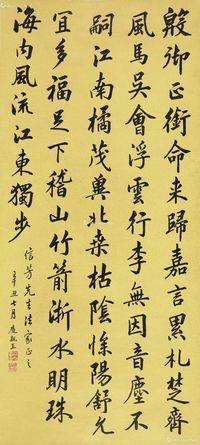 殷御正銜命来歸嘉言累札楚齊
風馬吳會浮雲行李無因音塵不
嗣江南橘茂冀北桒枯陰慘陽舒允
宜多福足下稽山竹箭浙水明珠
海内風流江東獨步
信芳先生法家正之
辛丑十月